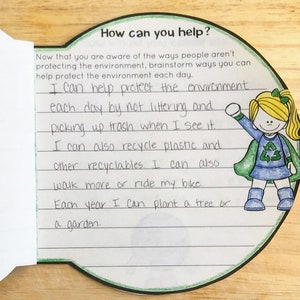 How can you help?
Now that you are aware of the ways people aren't
protecting the environment, brainstorm ways you can
help protect the environment each day.
I can help protect the environment
each day by not littering and
picking up trash when I see it.
I can also recycle plastic and
other recyclables. I can also
walk more or ride my bike.
Each year I can plant a tree or
a garden.